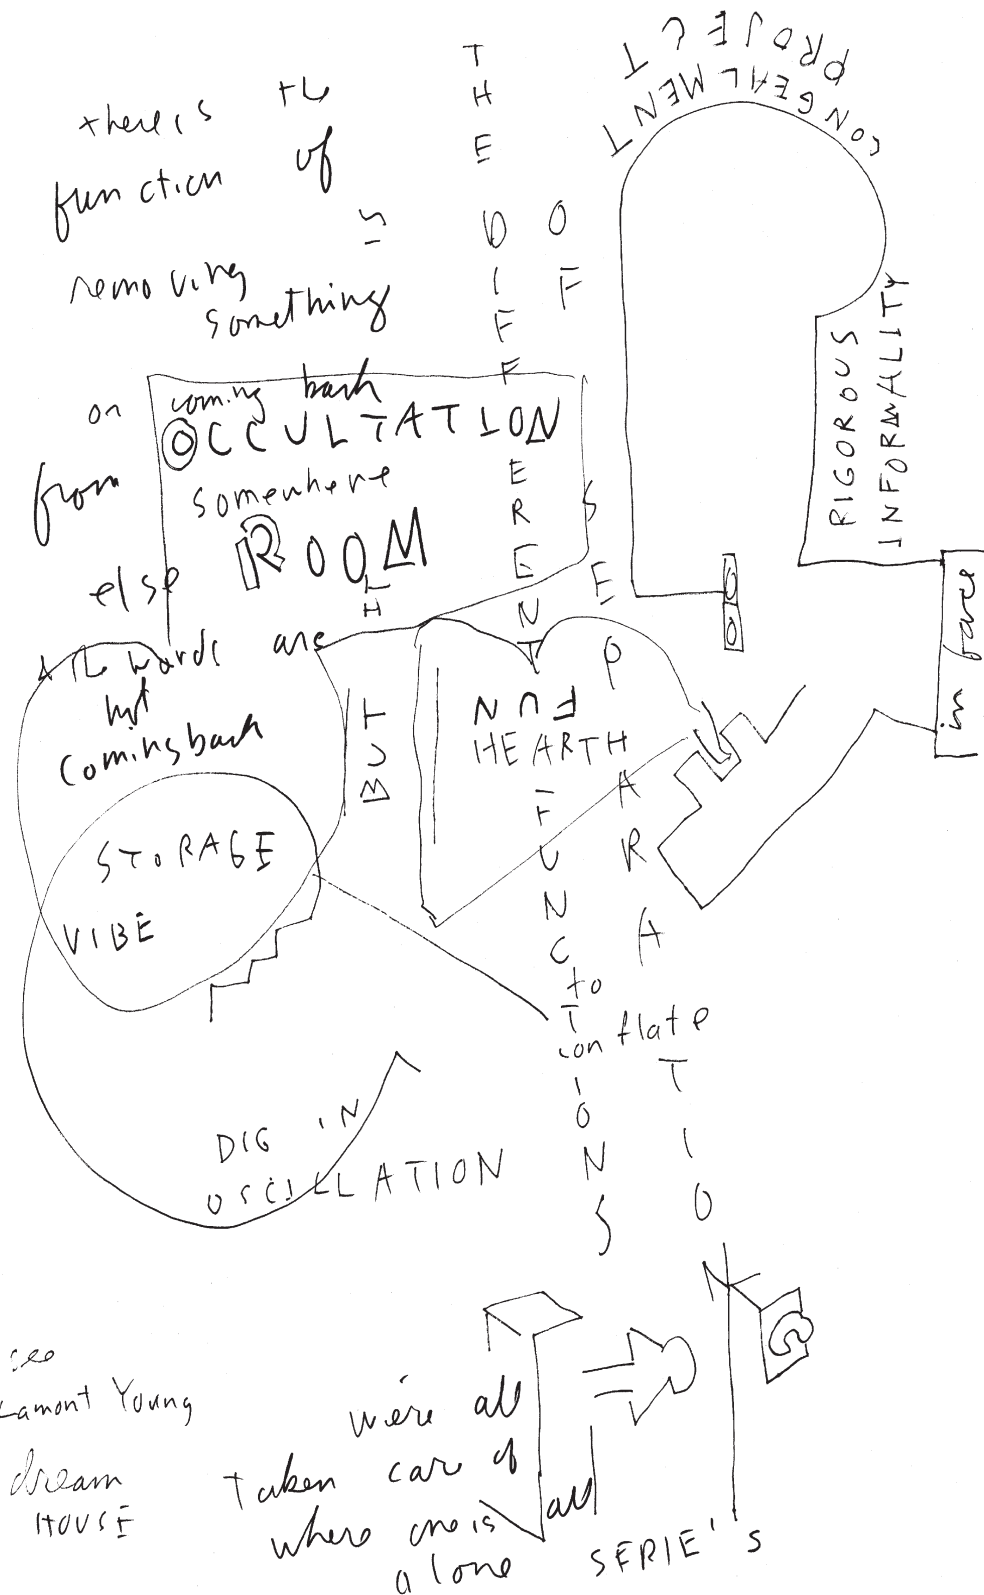 there is the
function of
removing
something
or coming back
from somewhere
else
all the words are
but
coming back
THE DIFFERENT FUNCTIONS
OF SEPARATION
CONGEALMENT
PROJECT
RIGOROUS
INFORMALITY
OCCULTATION
ROOM
in face
FUN
HEARTH
STORAGE
VIBE
to
conflate
DIG IN
OSCILLATION
see
Lamont Young
dream
HOUSE
we're all
taken care of
where one is all
alone
SERIE'S
G